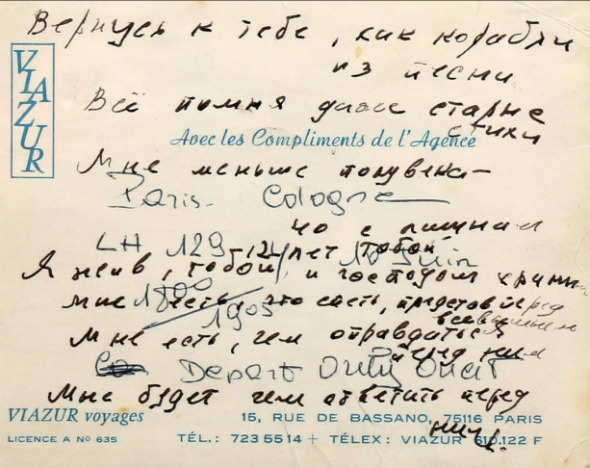 Вернусь к тебе, как корабли
из песни
VIAZUR
Всё помня даже старые
стихи
Avec les Compliments de l'Agence
Мне меньше полувека —
Paris - Cologne
с лишним
LH 129 - 12 лет тобой Juin
Я жив, тобой и господом храним
1800
Мне есть, что спеть, представ перед
всевышним
1905
Мне есть, чем оправдаться
перед ним
Depart Orly Ouest
Мне будет чем ответить перед
ним.
VIAZUR voyages
15, RUE DE BASSANO, 75116 PARIS
LICENCE A Nº 635
TÉL.: 723 55 14 + TÉLEX: VIAZUR 610.122 F